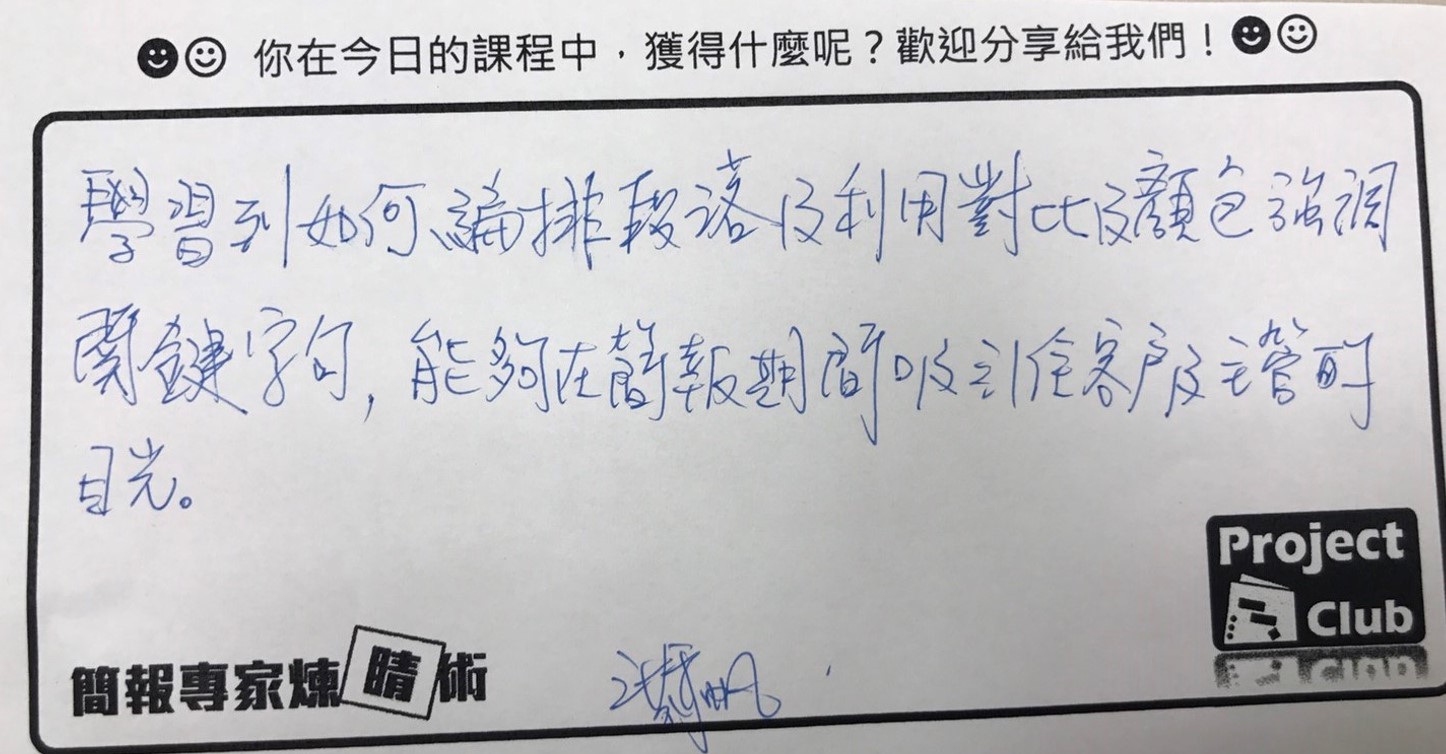 你在今日的課程中，獲得什麼呢？歡迎分享給我們！
學習到如何編排段落及利用對比及顏色強調
關鍵字句，能夠在簡報期間吸引住客戶及主管的
目光。
Project
Club
簡報專家煉晴術